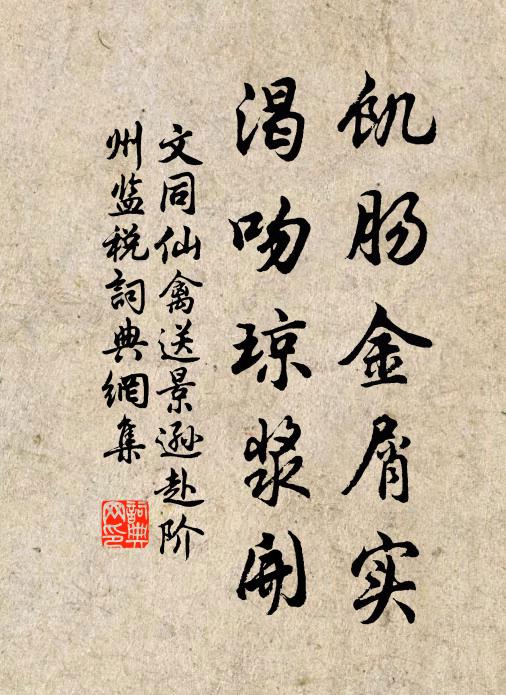 饥肠金屑实
渴吻琼浆开
文同仙禽送景逊赴阶
州监税詞典網集
詞典
网印